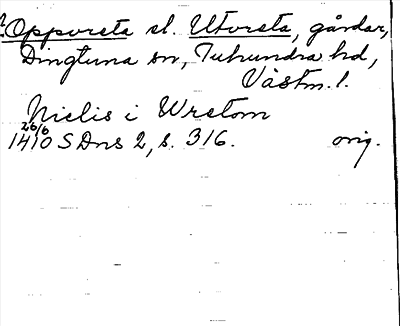 ? Opporsta el. Utorsta, gårdar,
Dingtuna sn, Tuhundra hd,
Västm. l.
Nielis i Wrstom
26/6
1410 SDns 2, s. 316. orig.